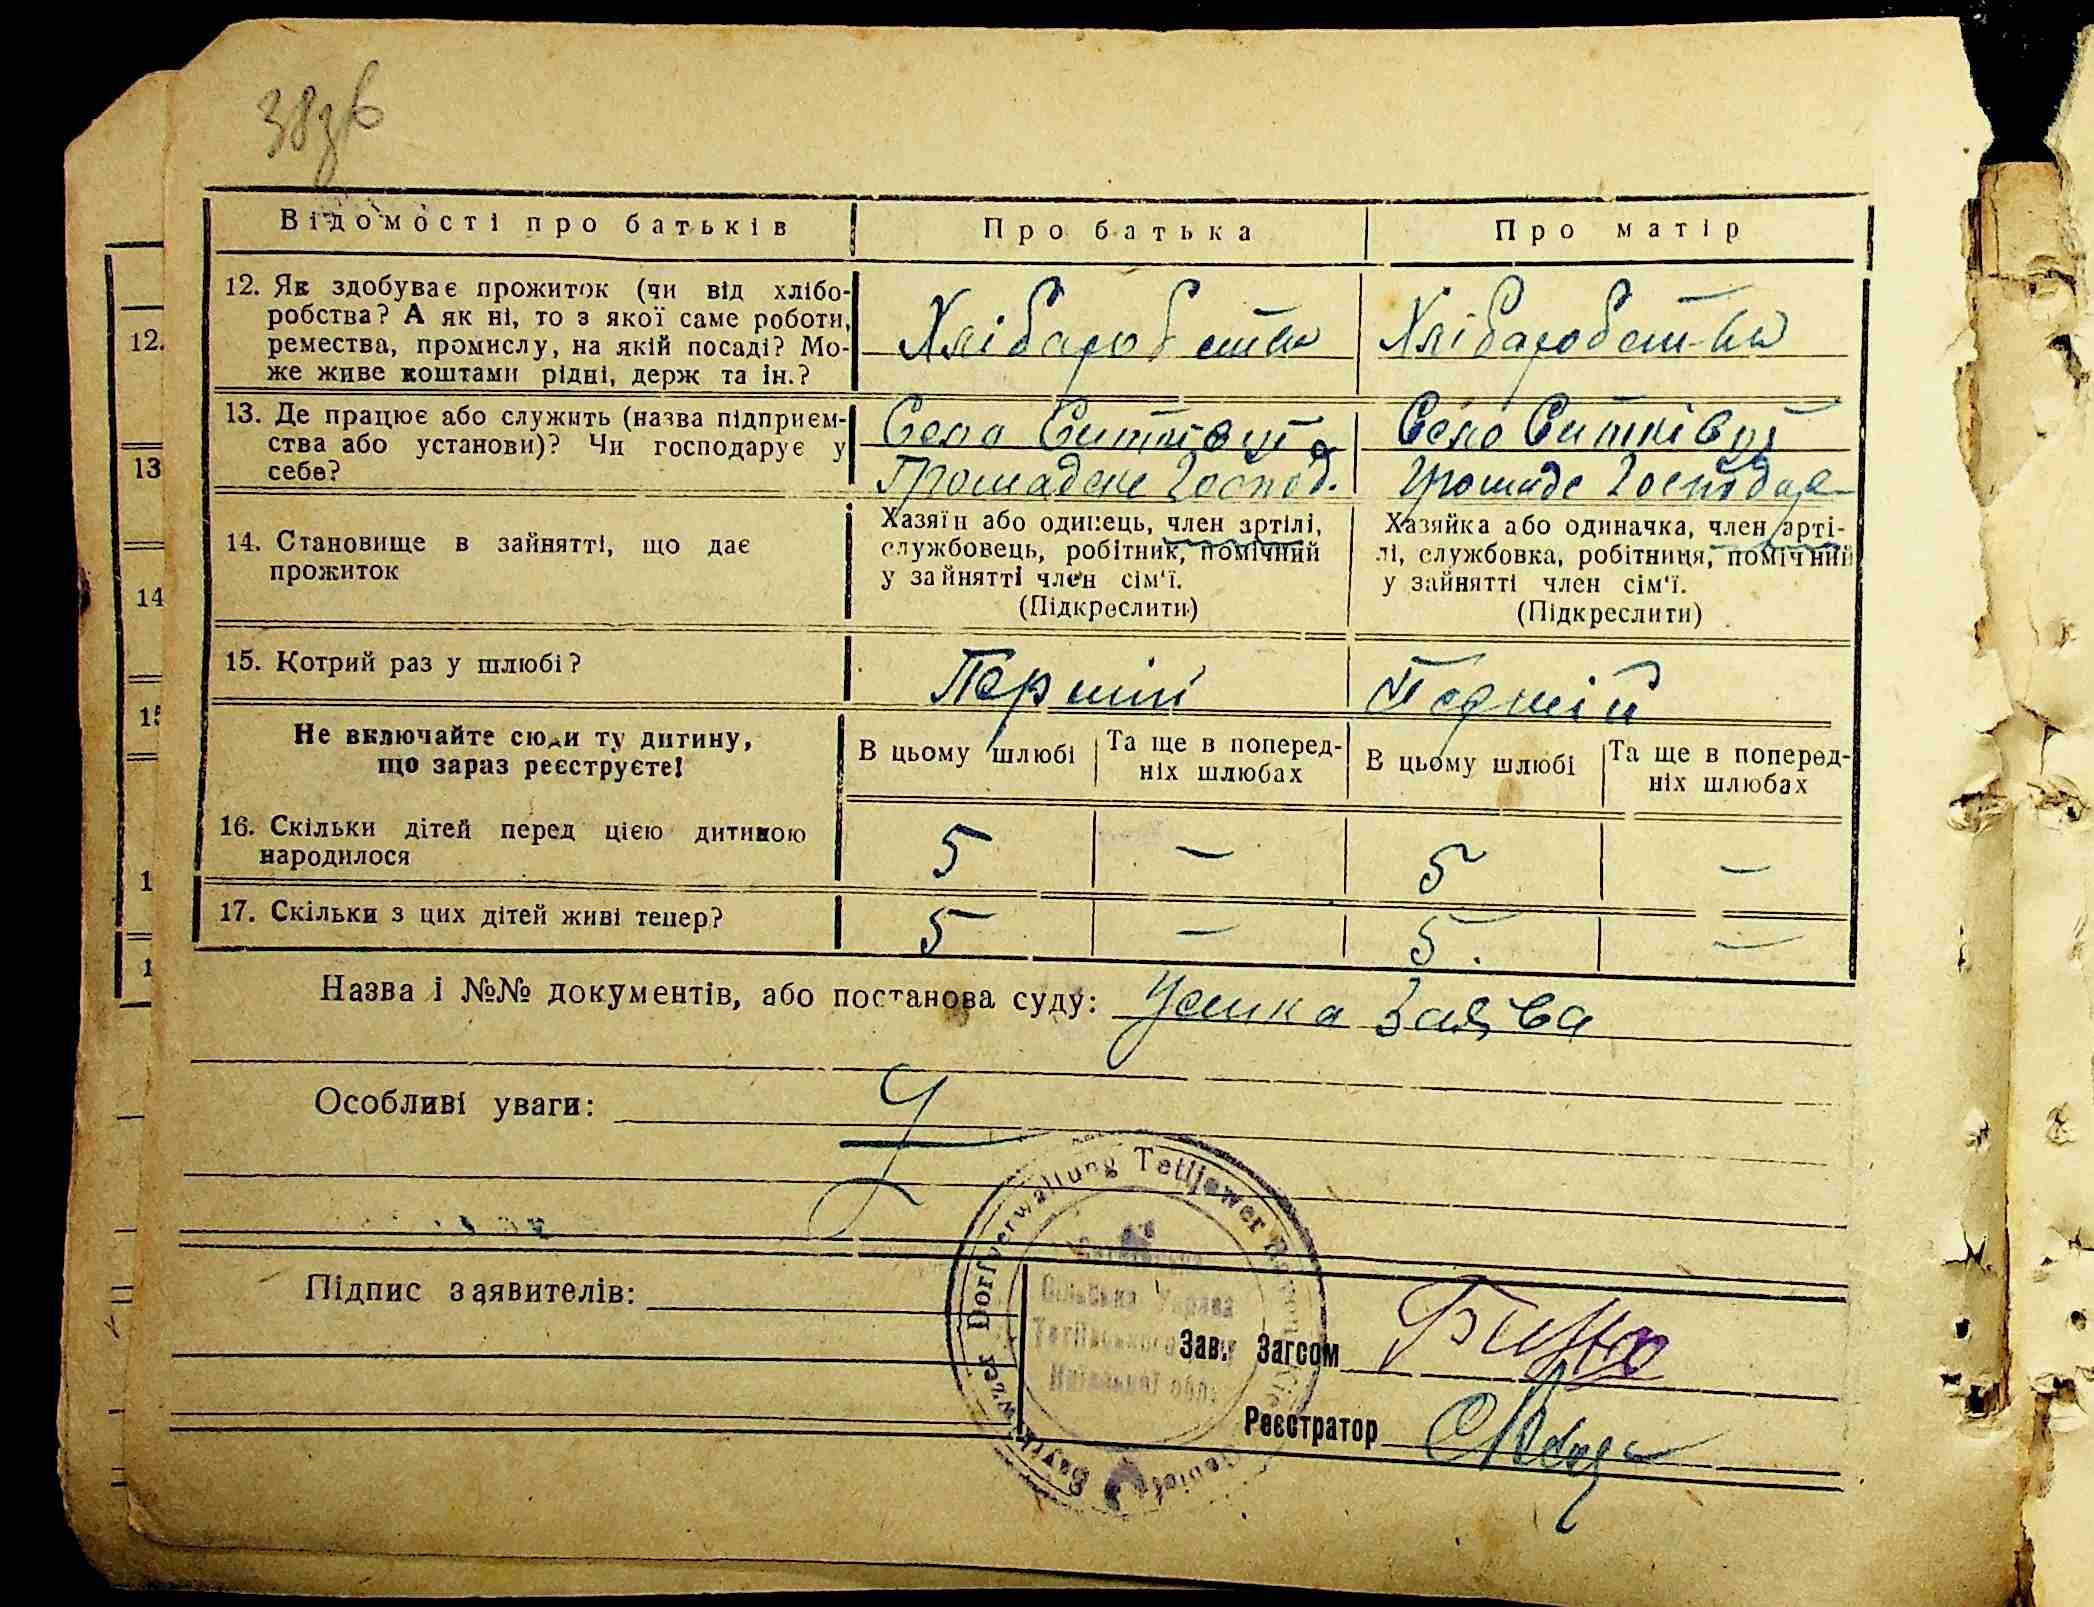 38зв
Відомості про батьків
Про батька
Про матір
12. Як здобуває прожиток (чи від хлібо-
робства? А як ні, то з якої саме роботи,
ремества, промислу, на якій посаді? Мо-
же живе коштами рідні, держ та ін.?
Хлібаробство
Хлібаробство
13. Де працює або служить (назва підприєм-
ства або установи)? Чи господарує у
себе?
Село
Громадське Господ.
Село
Громадс
14. Становище в зайнятті, що дає
прожиток
Хазяїн або одинець, член артілі,
службовець, робітник, помічний
у зайнятті член сім'ї.
(Підкреслити)
Хазяйка або одиначка, член арті-
лі, службовка, робітниця, помічний
у зайнятті член сім'ї.
(Підкреслити)
15. Котрий раз у шлюбі?
Перший
Перший
Не включайте сюди ту дитину,
що зараз реєструєте!
В цьому шлюбі
Та ще в поперед-
ніх шлюбах
В цьому шлюбі
Та ще в поперед-
ніх шлюбах
16. Скільки дітей перед цією дитиною
народилося
5
–
5
–
17. Скільки з цих дітей живі тепер?
5
–
5.
–
Назва і №№ документів, або постанова суду: Усика Заява
Особливі уваги:
Dorfverwaltung Tetijewer Rayon
Сільська Управа
Тетіївського
Київської обл.
Підпис заявителів:
Зав. Загсом
Реєстратор
12.
13
14
15
1
1